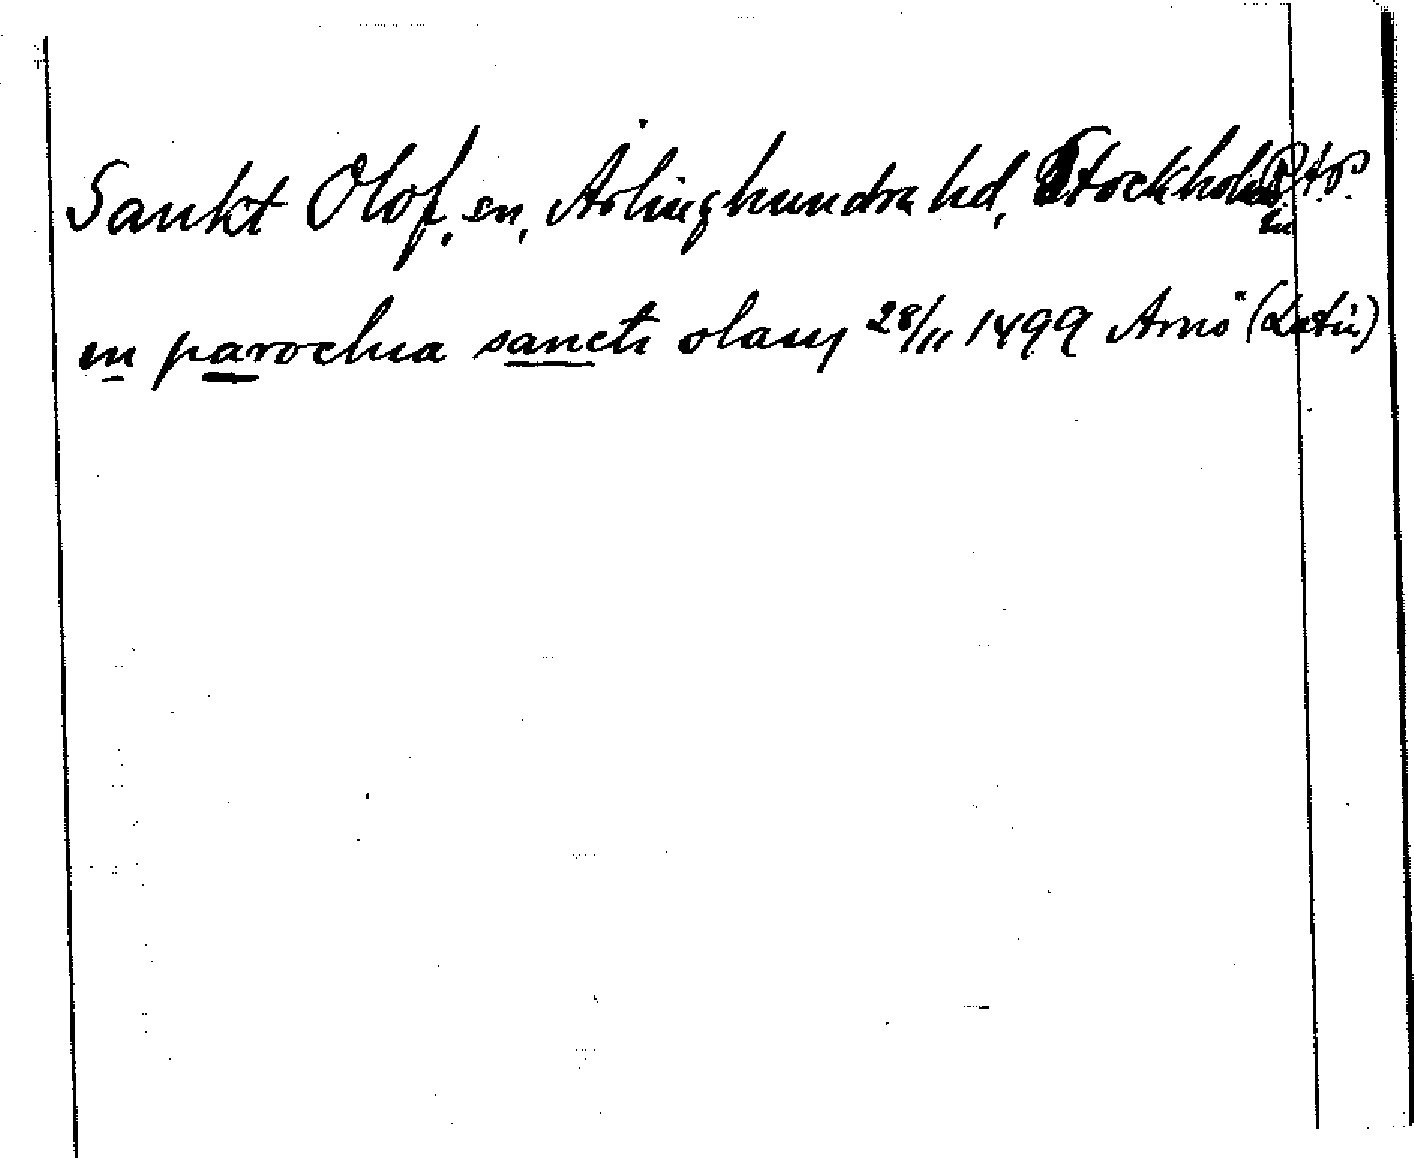 Sankt Olof, sn, Ärlinghundra hd, Stockholms län
in parochia sancti olauj 28/11 1499 Arnö (Latin)